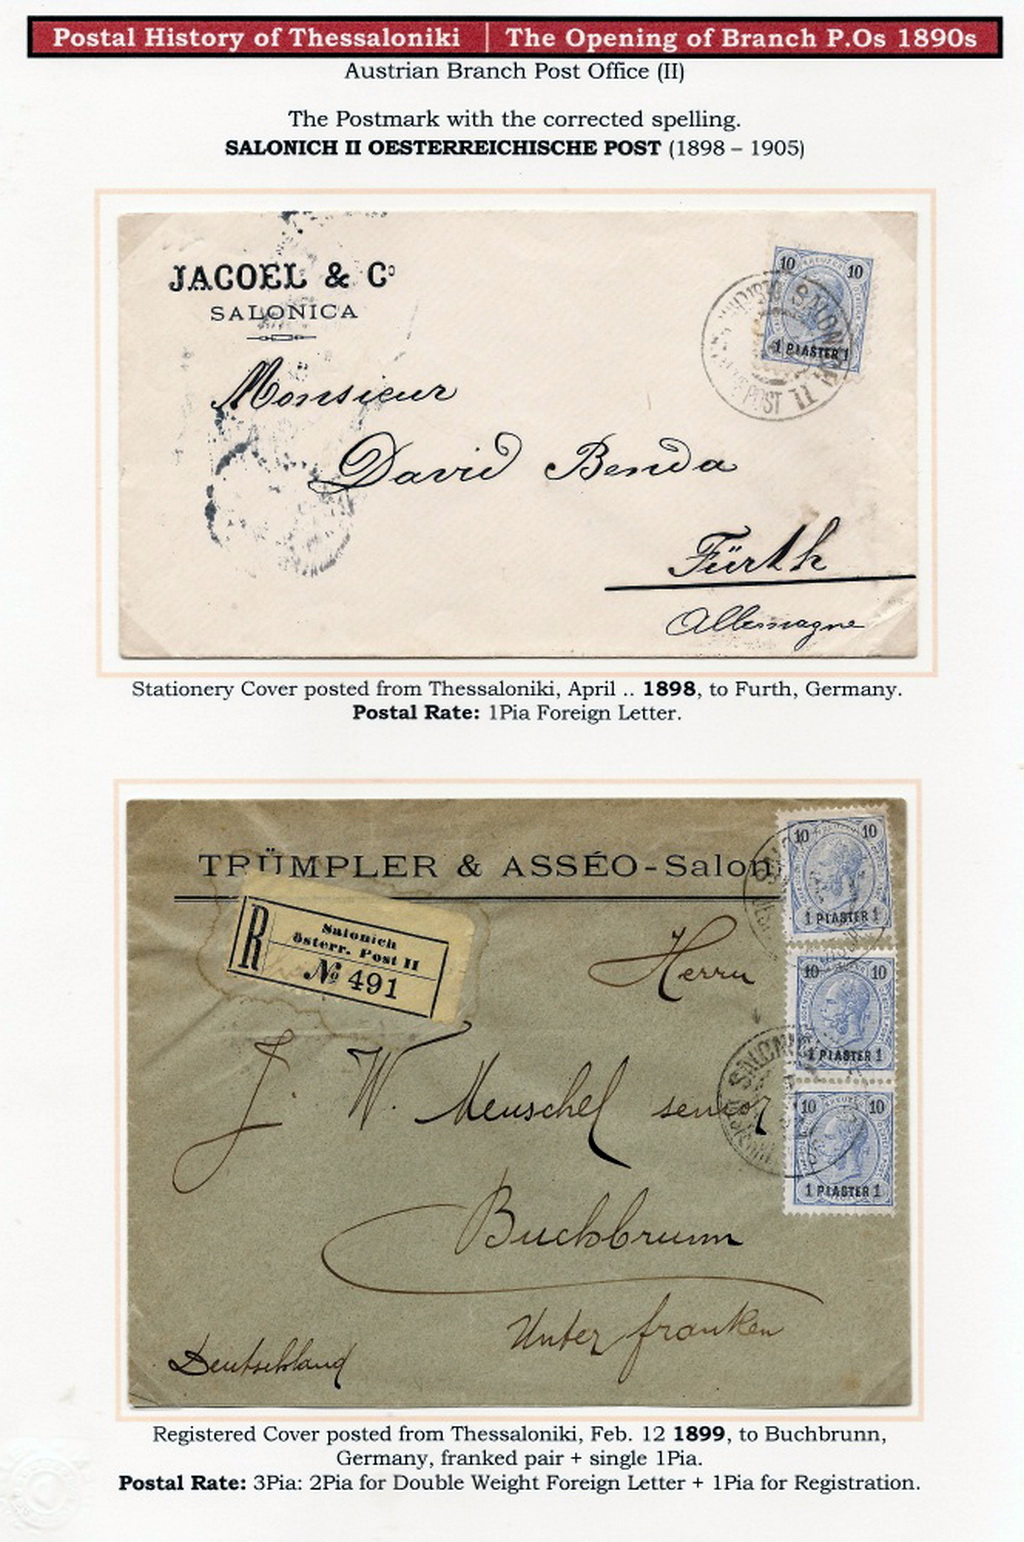 Postal History of Thessaloniki | The Opening of Branch P.Os 1890s
Austrian Branch Post Office (II)
The Postmark with the corrected spelling.
SALONICH II OESTERREICHISCHE POST (1898 – 1905)
JACOEL & Co
SALONICA
10 KREUZER 10
1 PIASTER 1
SALONICH II
POST
Monsieur
David Benda
Fürth
Allemagne
Stationery Cover posted from Thessaloniki, April .. 1898, to Furth, Germany.
Postal Rate: 1Pia Foreign Letter.
TRÜMPLER & ASSÉO-Salon
10 10
1 PIASTER 1
R
Salonich
österr. Post II
No 491
Herrn
10 10
1 PIASTER 1
SALONICH
J. W. Meuschel senior
10 KREUZER 10
1 PIASTER 1
Buchbrunn
Unterfranken
Deutschland
Registered Cover posted from Thessaloniki, Feb. 12 1899, to Buchbrunn,
Germany, franked pair + single 1Pia.
Postal Rate: 3Pia: 2Pia for Double Weight Foreign Letter + 1Pia for Registration.